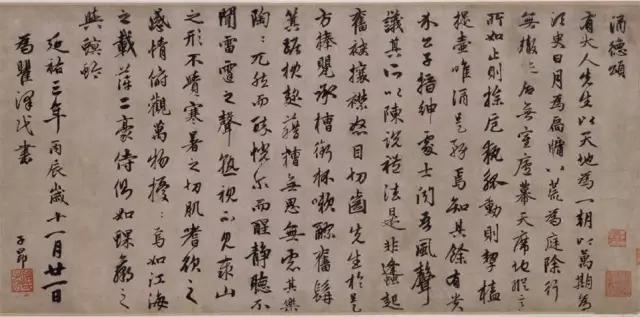 酒德頌
有大人先生以天地為一朝以萬期為
須臾日月為扃牖八荒為庭除行
無轍跡居無室廬幕天席地縱意
所如止則操卮執觚動則挈榼
提壺唯酒是務焉知其餘有貴
介公子搢紳處士聞吾風聲
議其所以陳說禮法是非蠭起
奮袂攘襟怒目切齒先生於是
方捧甖承槽銜杯嗽醪奮髯
箕踞枕麴藉糟無思無慮其樂
陶〻兀然而醉恍尔而醒靜聽不
聞雷霆之聲孰視不見泰山
之形不覺寒暑之切肌耆欲之
感情俯觀萬物擾〻焉如江海
之載萍二豪侍側如蜾蠃之
與螟蛉
延祐三年丙辰歲十一月廿一日
為瞿澤書
子昂